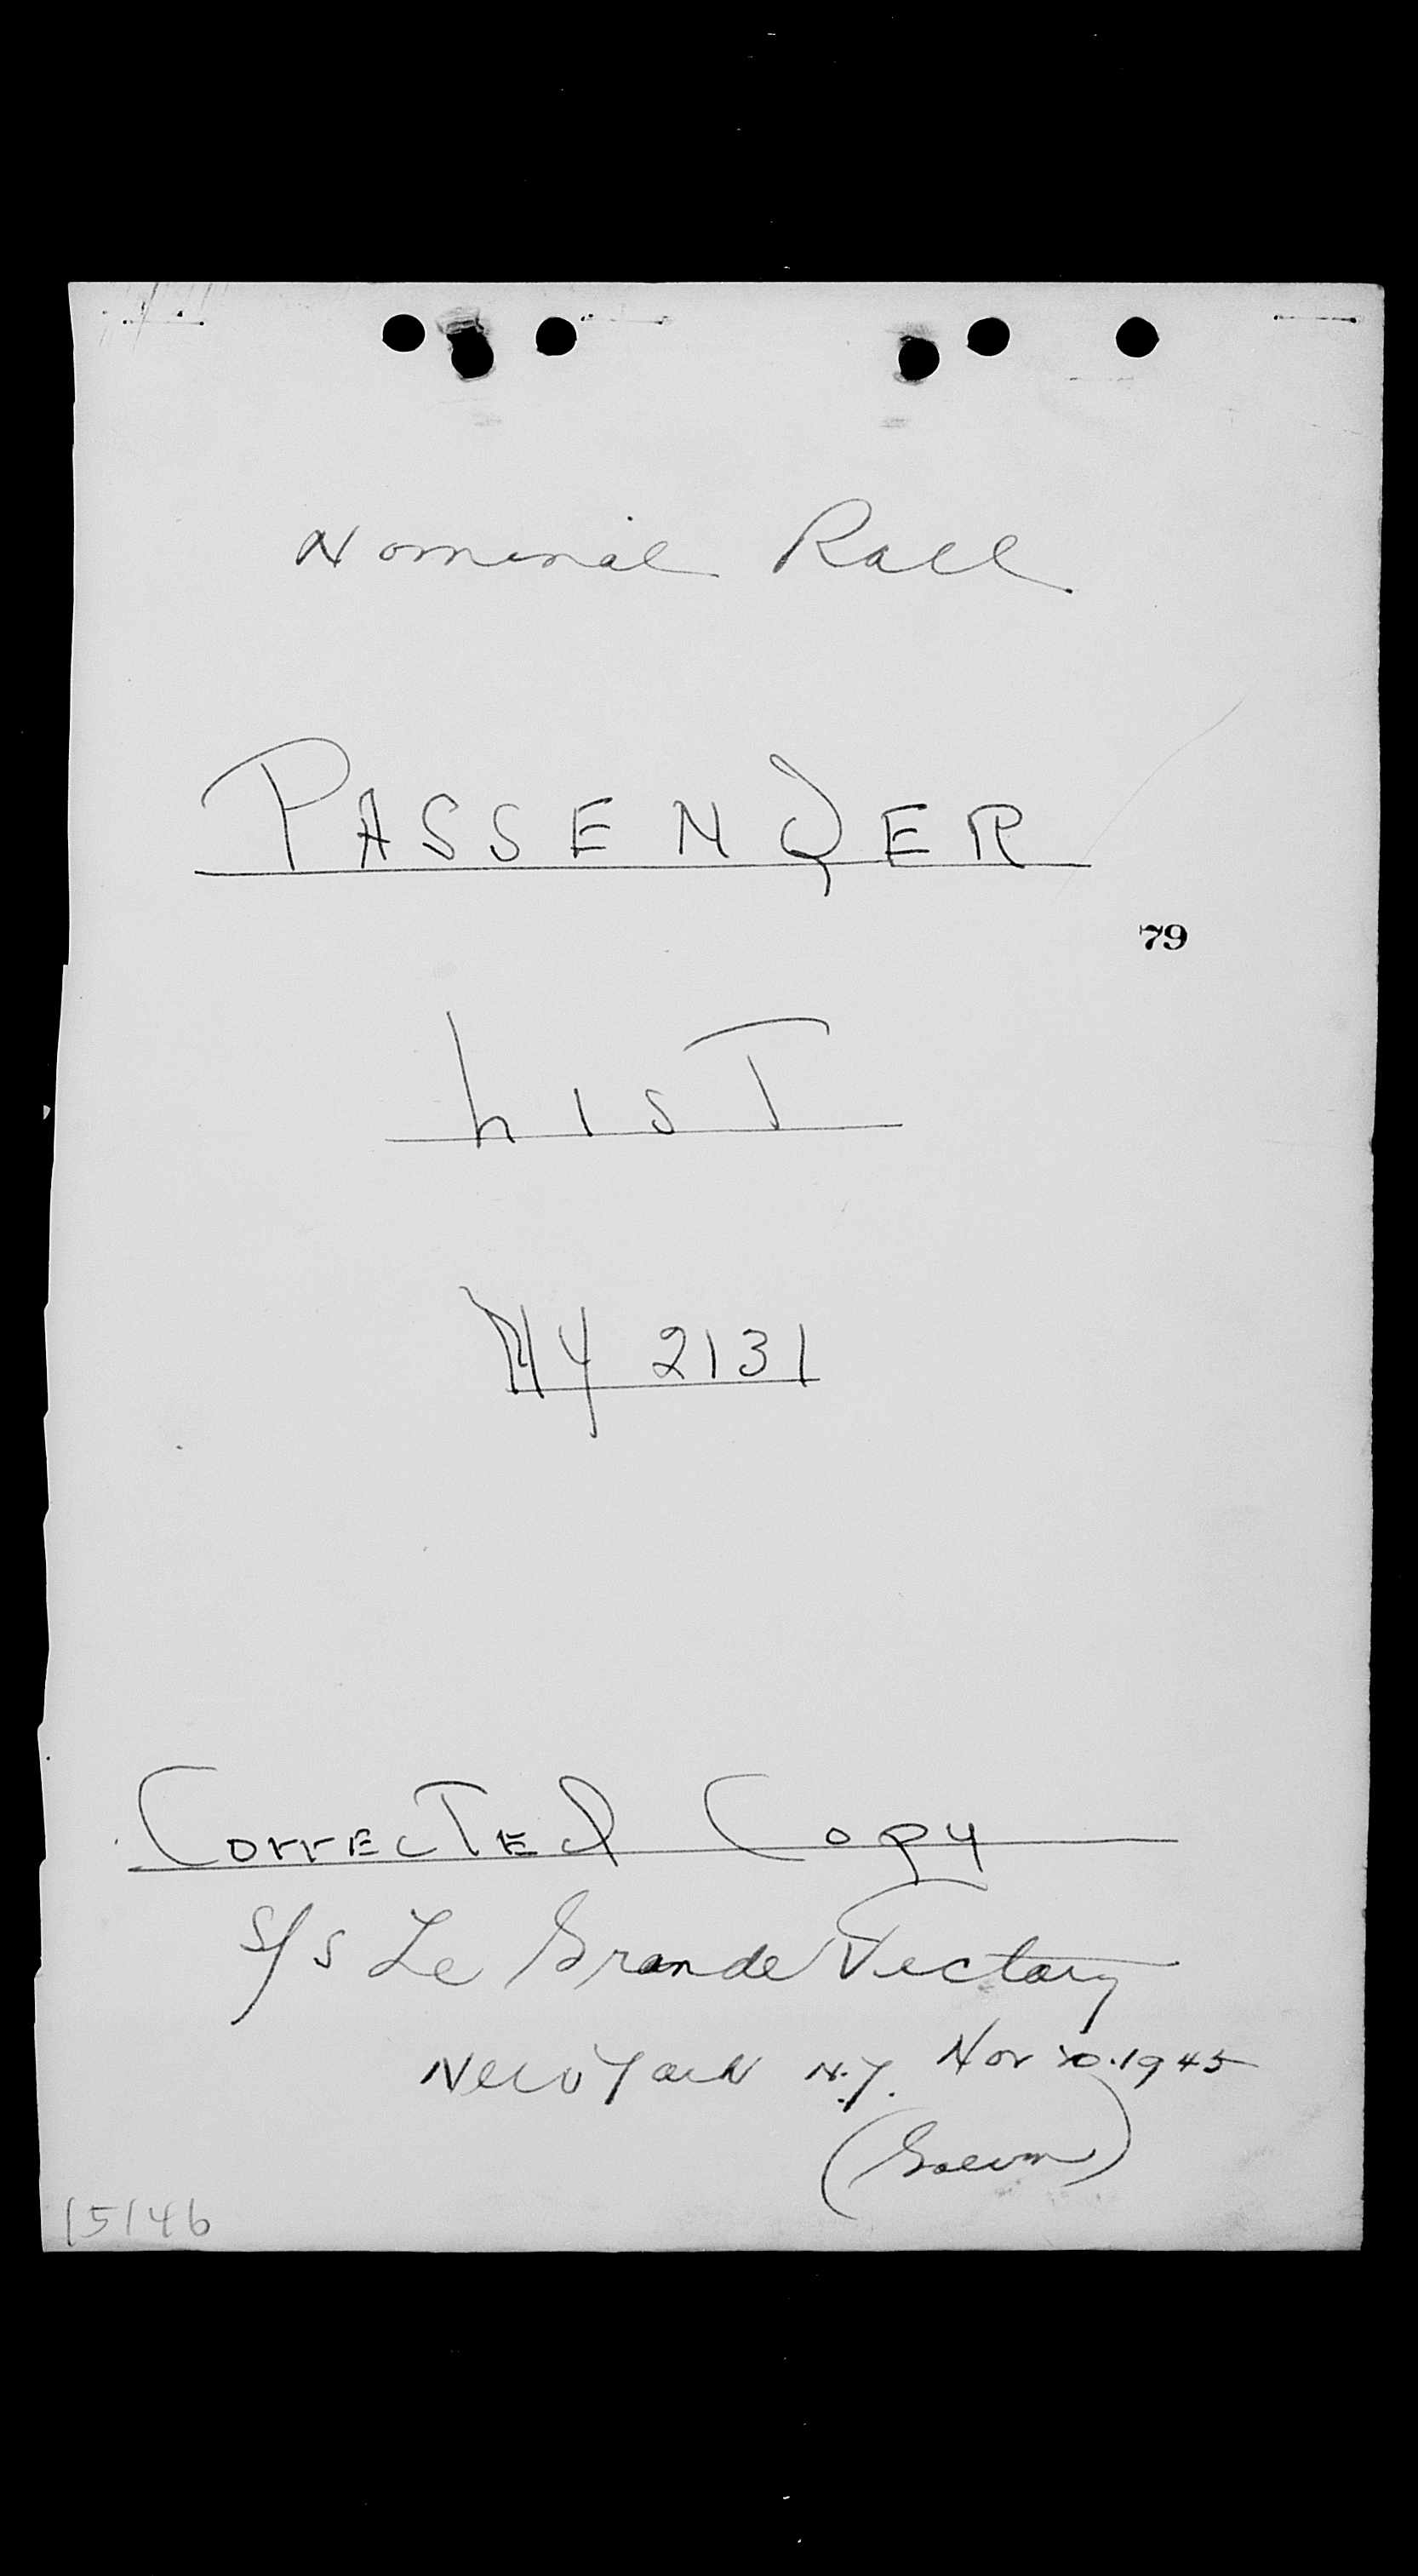 Nominal Roll
PASSENGER
79
LIST
NY 2131
Corrected Copy
S/S Le Grande Victory
New York N.Y. Nov 1945
15146